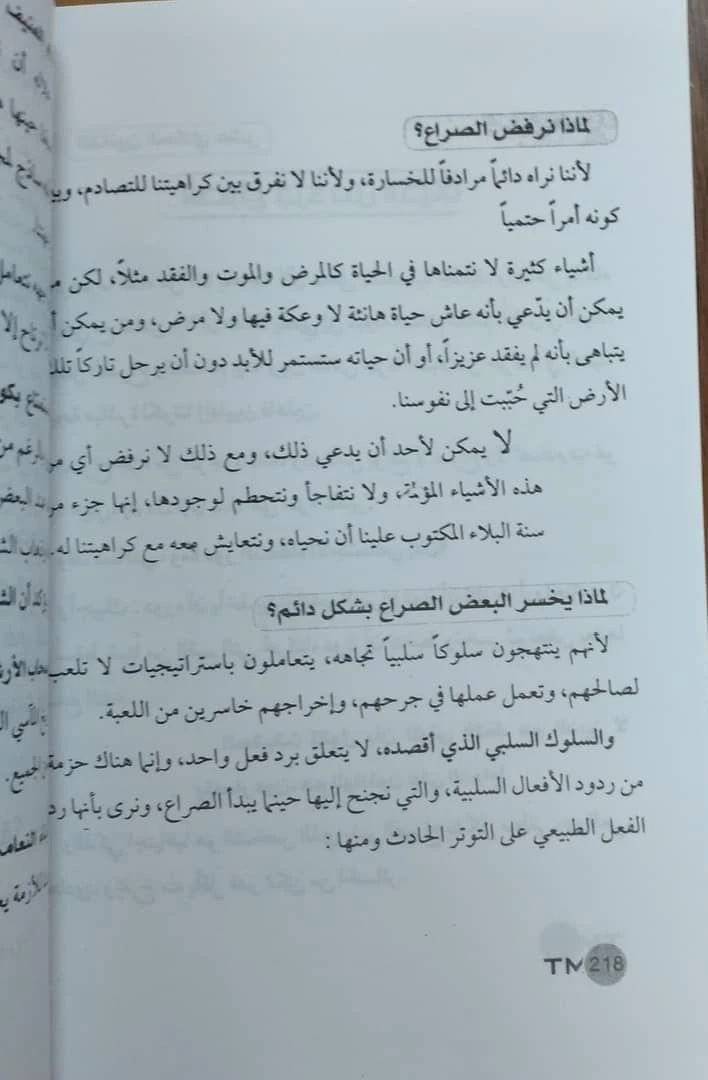 لماذا نرفض الصراع؟
لأننا نراه دائماً مرادفاً للخسارة، ولأننا لا نفرق بين كراهيتنا للتصادم،
كونه أمراً حتمياً
أشياء كثيرة لا نتمناها في الحياة كالمرض والموت والفقد مثلاً، لكن
يمكن أن يدّعي بأنه عاش حياة هانئة لا وعكة فيها ولا مرض، ومن يمكن
يتباهى بأنه لم يفقد عزيزاً، أو أن حياته ستستمر للأبد دون أن يرحل تاركاً
الأرض التي حُبّبت إلى نفوسنا.
لا يمكن لأحد أن يدعي ذلك، ومع ذلك لا نرفض أي
هذه الأشياء المؤلمة، ولا نتفاجأ ونتحطم لوجودها، إنها جزء
سنة البلاء المكتوب علينا أن نحياه، ونتعايش معه مع كراهيتنا له.
لماذا يخسر البعض الصراع بشكل دائم؟
لأنهم ينتهجون سلوكاً سلبياً تجاهه، يتعاملون باستراتيجيات لا تلعب
لصالحهم، وتعمل عملها في جرحهم، وإخراجهم خاسرين من اللعبة.
والسلوك السلبي الذي أقصده، لا يتعلق برد فعل واحد، وإنما هناك حزمة
من ردود الأفعال السلبية، والتي نجنح إليها حينما يبدأ الصراع، ونرى بأنها رد
الفعل الطبيعي على التوتر الحادث ومنها :
TM 218